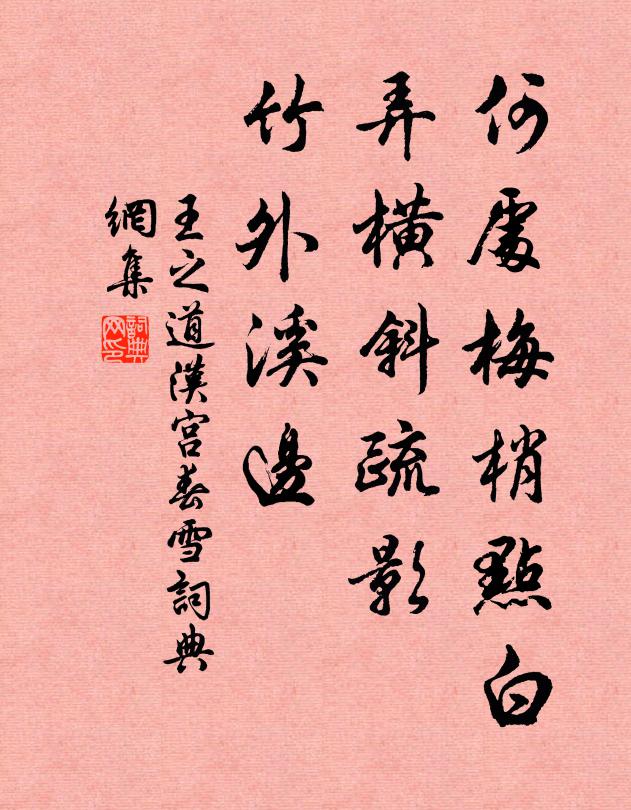 何處梅梢點白
弄橫斜疏影
竹外溪邊
王之道漢宮春雪詞典
網集
詞典網印